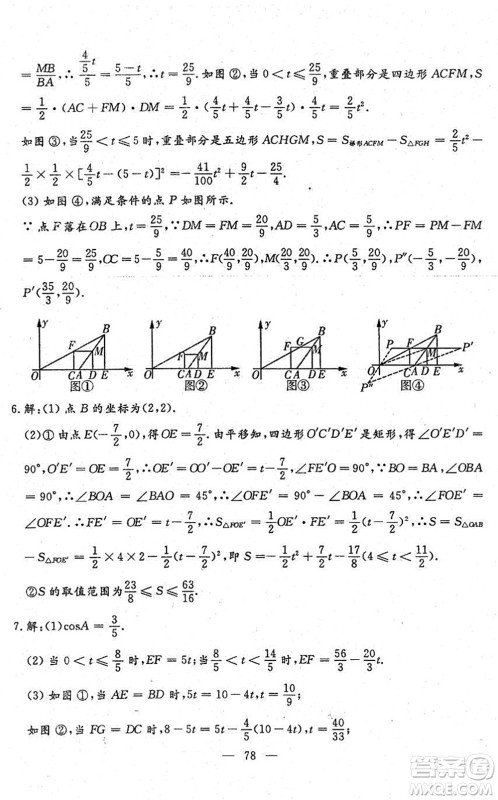 =MB/BA,∴(4/5 t)/4=(5-t)/5,t=25/9.如图②,当0<t≤25/9,重叠部分是四边形ACFM,S=
1/2·(AC+FM)·DM=1/2·(4/5t+1/5t)·4/5t=2/5t².
如图③,当25/9<t≤5时,重叠部分是五边形ACHGM,S=S梯形ACFM-S△FGH=2/5t²-
1/2×1/2×[4/5t-(5-t)]²=-41/100t²+9/2t-25/4.
(3)如图④,满足条件的点P如图所示.
∵点F落在OB上,t=25/9,∵DM=FM=20/9,AD=5/3,CA=5/9,∴PF=PM-FM
=5-20/9=25/9,OC=5-5/9=40/9,∴F(40/9,20/9),M(20/3,20/9).∴P(5/3,20/9),P″(-5/3,-20/9),
P′(35/3,20/9).
y B F M O C A D E x 图①
y B F M O C A D E x 图②
y B F G M O C A D E x 图③
y B P F M P′ O C A D E x P″ 图④
6.解:(1)点B的坐标为(2,2).
(2)①由点E(-7/2,0),得OE=7/2.由平移知,四边形O′C′D′E′是矩形,得∠O′E′D′=
90°,O′E′=OE=7/2,∴OE′=OO′-O′E′=t-7/2,∠FE′O=90°.∵BO=BA,∠OBA
=90°,∴∠BOA=∠BAO=45°,∴∠OFE′=90°-∠BOA=45°,∴∠FOE′=
∠OFE′,∴FE′=OE′=t-7/2,∴S△FOE′=1/2OE′·FE′=1/2(t-7/2)²,∴S=S△OAB
-S△FOE′=1/2×4×2-1/2(t-7/2)²,即S=-1/2t²+7/2t-17/8(4≤t<9/2);
②S的取值范围为23/8≤S≤63/16.
7.解:(1)cosA=3/5.
(2)当0<t≤8/5时,EF=5t;当8/5<t<14/5时,EF=56/3-20/3t.
(3)如图①,当AE=BD时,5t=10-4t,t=10/9;
如图②,当FG=DC时,8-5t=5t-4/5(10-4t),t=40/33;
— 78 —